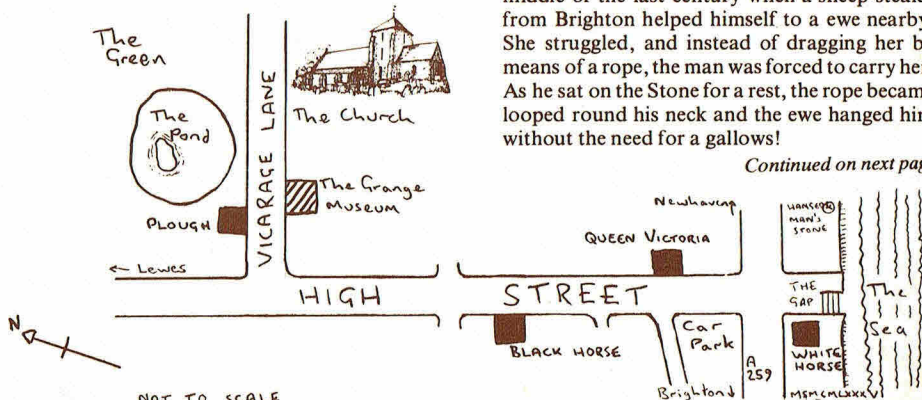 middle of the last century when a sheep steale
from Brighton helped himself to a ewe nearby
She struggled, and instead of dragging her b
means of a rope, the man was forced to carry he
As he sat on the Stone for a rest, the rope becam
looped round his neck and the ewe hanged him
without the need for a gallows!
Continued on next pag
The
Green
The
Pond
VICARAGE LANE
The Church
The Grange
Museum
PLOUGH
← Lewes
Newhaven
QUEEN VICTORIA
MAN'S
STONE
THE
GAP
The
Sea
HIGH STREET
N
BLACK HORSE
Car
Park
A
259
WHITE
HORSE
Brighton
NOT TO SCALE